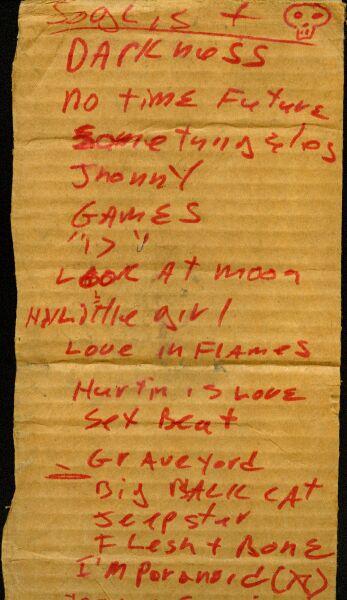 +
DARKNESS
no time Future
Something else
Jhonny
GAMES
"13"
LOOK At moon
little girl
Love in FLAmes
Hurtin is Love
Sex Beat
Graveyord
Big BLACK CAT
Jeepster
Flesh + Bone
I'm Poranoid